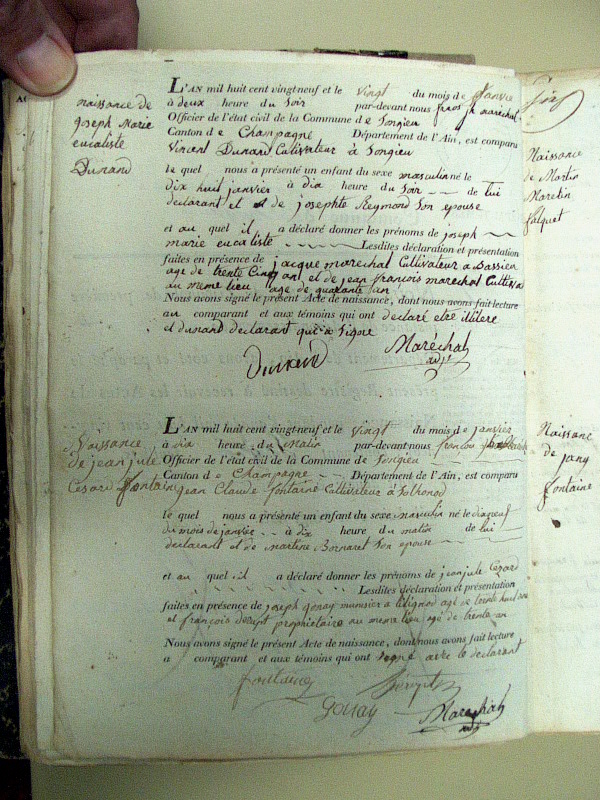 naissance de
joseph Marie
eucaliste
Dunand
L'AN mil huit cent vingt-neuf et le vingt du mois de janvie
à deux heure du soir par-devant nous fracs jh maréchal
Officier de l'état civil de la Commune de Songieu
Canton de Champagne Département de l'Ain, est comparu
Vincent Dunand Cultivateur à Songieu
le quel nous a présenté un enfant du sexe masculin né le
dix huit janvier à dix heure du soir de lui
déclarant et de josephte Reymond son epouse
et au quel il a déclaré donner les prénoms de joseph
marie eucaliste Lesdites déclaration et présentation
faites en présence de jacque marechal Cultivateur a Bassieu
age de trente Cinq an et de jean françois marechal Cultiva
au meme lieu age de quarante an
Nous avons signé le présent Acte de naissance, dont nous avons fait lecture
au comparant et aux témoins qui ont declaré etre illitere
et dunand declarant qui a signé
Dunand
Maréchal
adjt
Naissance
de jean jule
Cesard fontaine
L'AN mil huit cent vingt-neuf et le vingt du mois de janvier
à dix heure du matin par-devant-nous francois
Officier de l'état civil de la Commune de Songieu
Canton de Champagne Département de l'Ain, est comparu
jean Claude fontaine Cultivateur à Sothonod
le quel nous a présenté un enfant du sexe masculin né le dixneuf
du mois de janvier à dix heure du matin de lui
declarant et de martine Bornaret son epouse
et au quel il a déclaré donner les prénoms de jean jule Cesard
Lesdites déclaration et présentation
faites en présence de joseph gonay munsier a lilignod agé de trente huit ans
et françois proprietaire au meme lieu agé de trente an
Nous avons signé le présent Acte de naissance, dont nous avons fait lecture
a comparant et aux témoins qui ont signé avec le declarant
fontaine
Gonay
Maréchal
adjt
Naissance
de Martin
Maretin
falquet
Naissance
de jany
fontaine